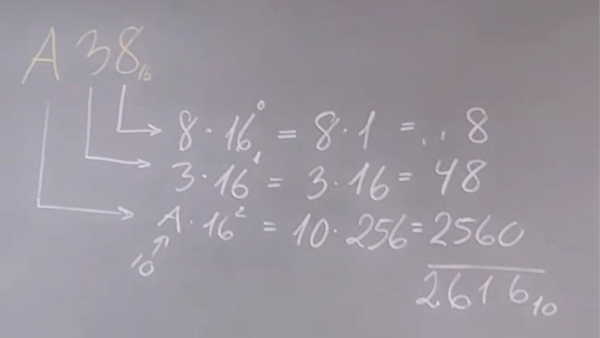 A38₁₆
8·16⁰ = 8·1 = .. 8
3·16¹ = 3·16 = 48
A·16² = 10·256 = 2560
10
2616₁₀